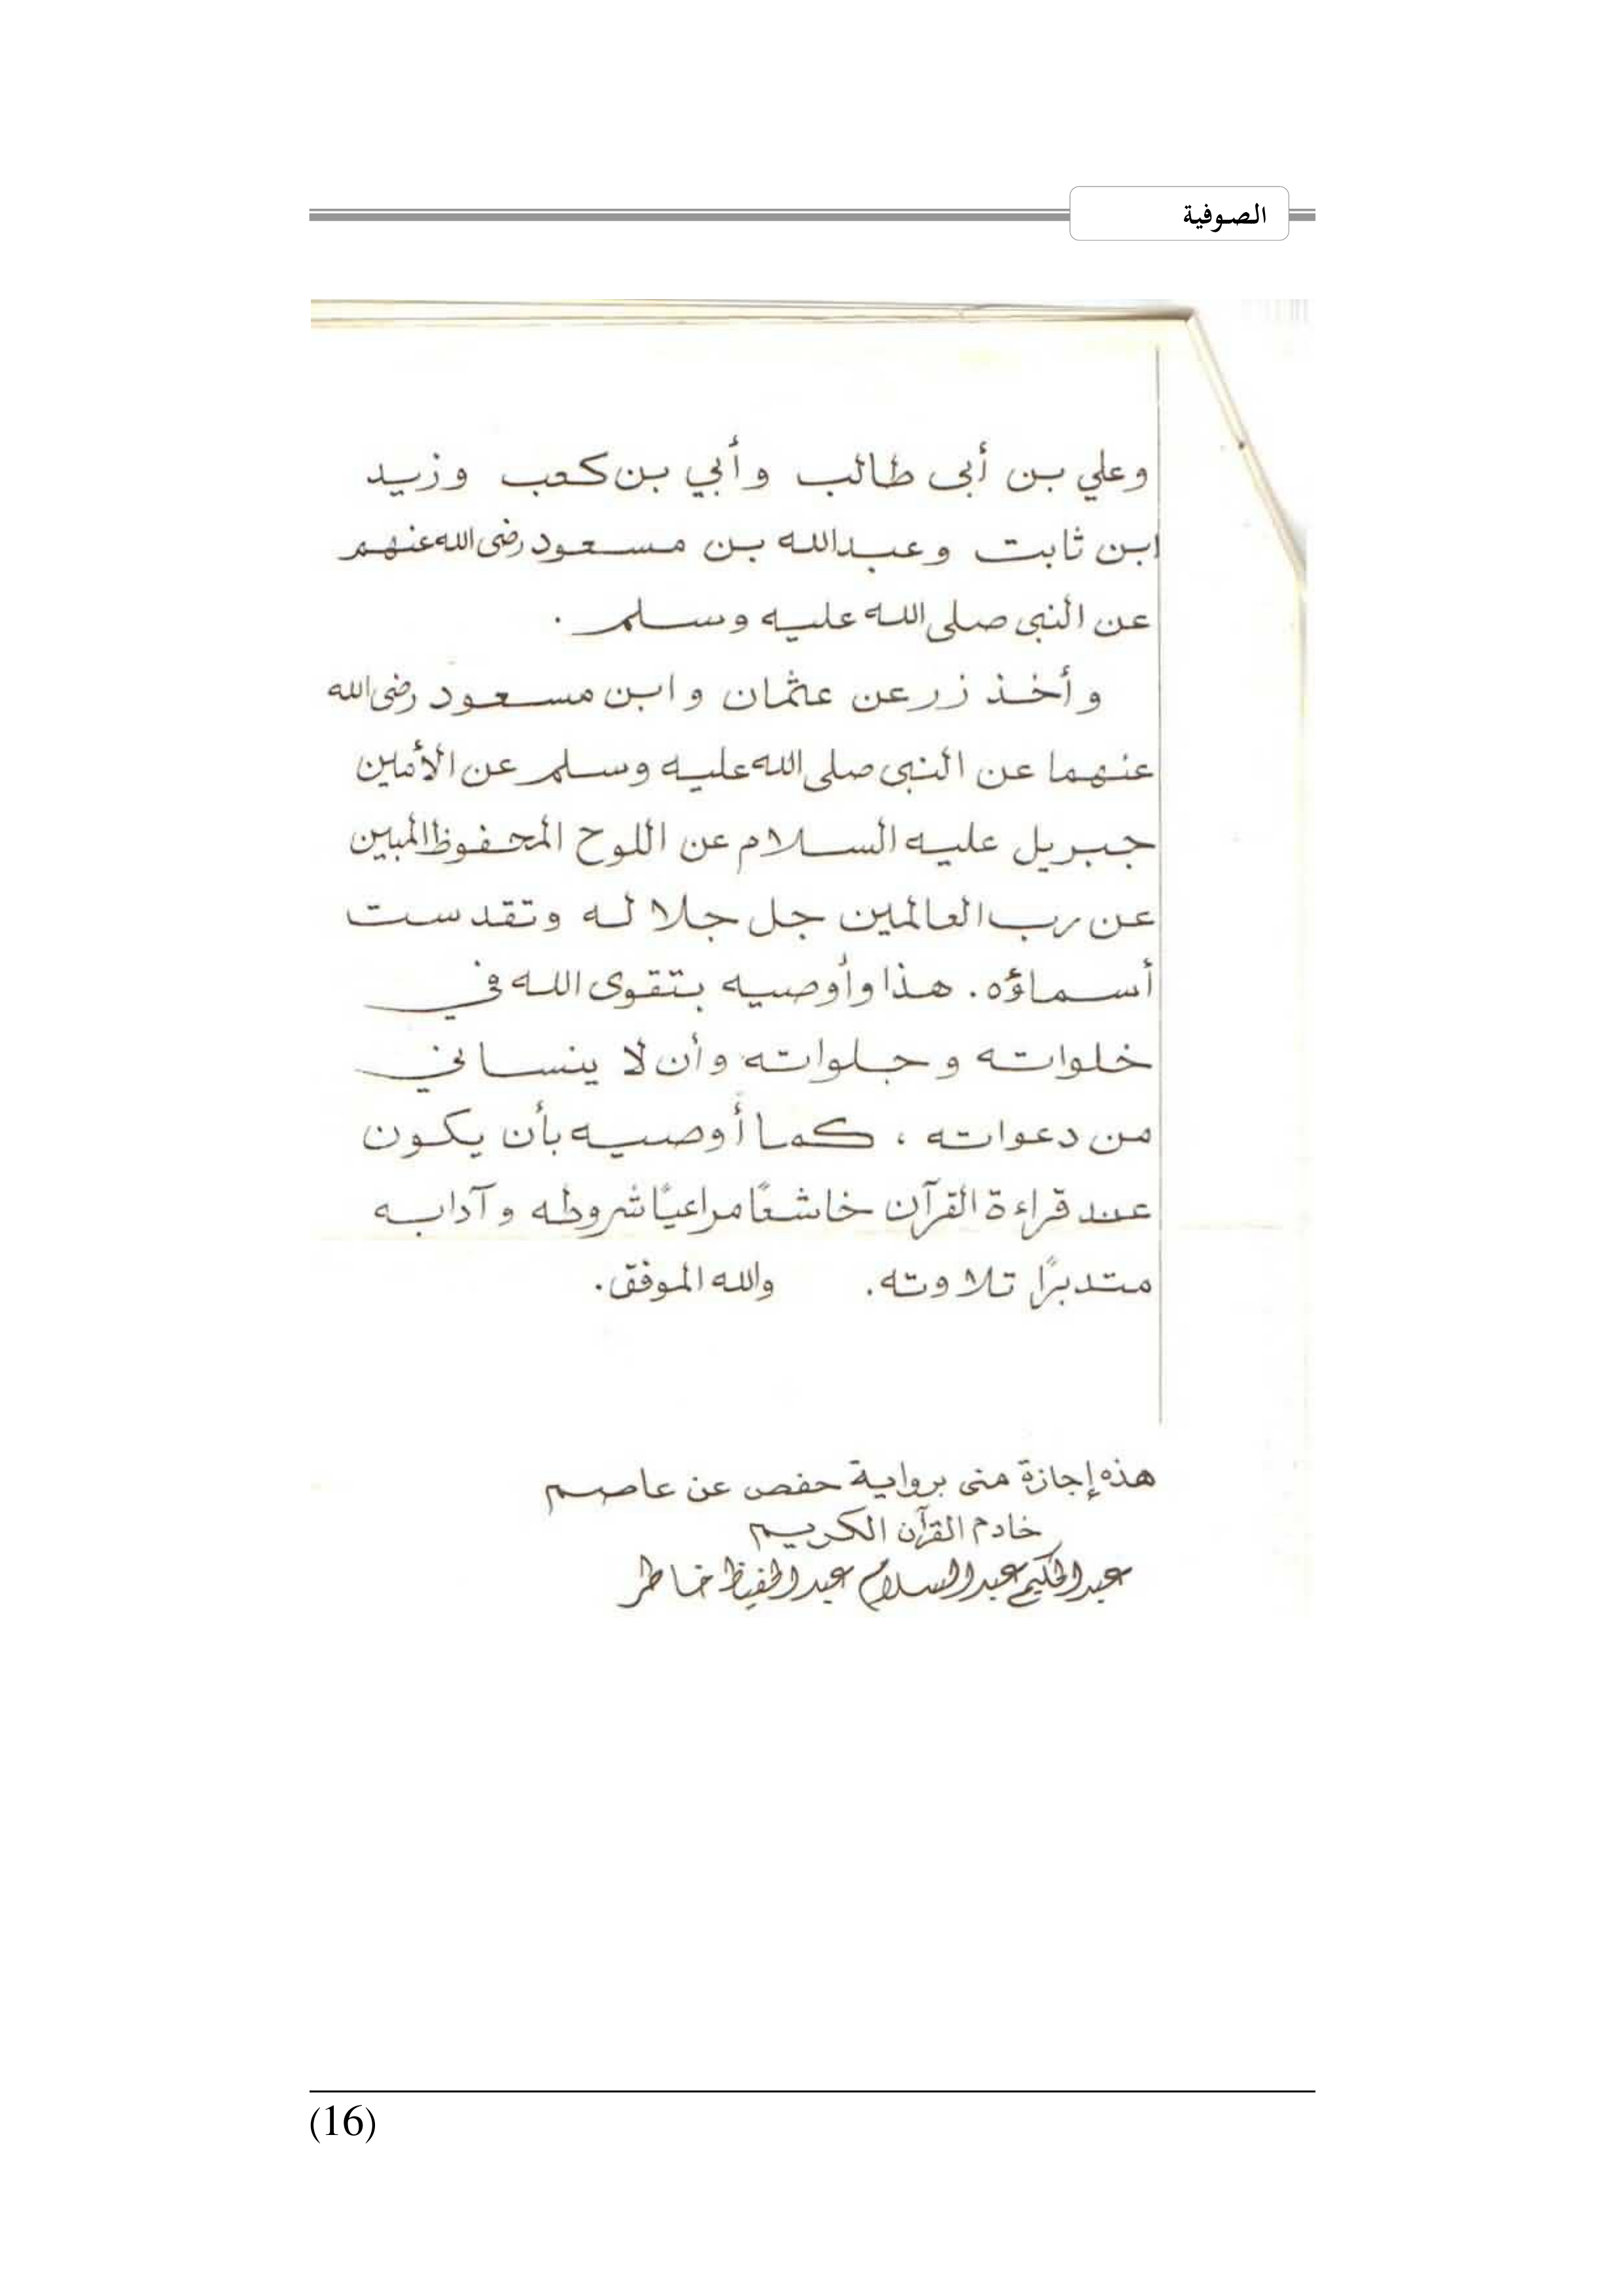 الصوفية
وعلي بن أبى طالب وأبي بن كعب وزيد
ابن ثابت وعبدالله بن مسعود رضى الله عنهم
عن النبى صلى الله عليه وسلم .
وأخذ زر عن عثمان وابن مسعود رضى الله
عنهما عن النبى صلى الله عليه وسلم عن الأمين
جبريل عليه السلام عن اللوح المحفوظ المبين
عن رب العالمين جل جلاله وتقدست
أسماؤه . هذا وأوصيه بتقوى الله في
خلواته وجلواته وأن لا ينساني
من دعواته ، كما أوصيه بأن يكون
عند قراءة القرآن خاشعًا مراعيًا شروطه وآدابه
متدبرًا تلاوته . والله الموفق .
هذه إجازة منى برواية حفص عن عاصم
خادم القرآن الكريم
عبد الحكيم عبد السلام عبد الحفيظ خاطر
(16)